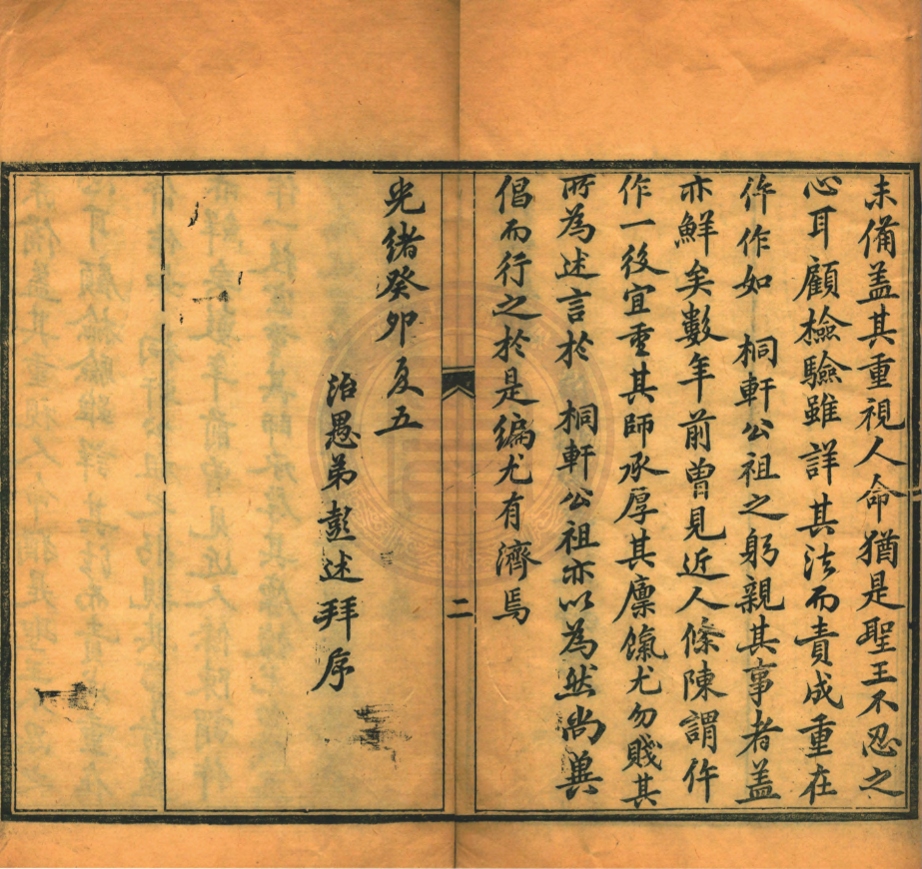 未備盖其重視人命猶是聖王不忍之
心耳顧檢驗雖詳其法而責成重在
仵作如 桐軒公祖之躬親其事者盖
亦鮮矣數年前曾見近人條陳謂仵
作一役宜重其師承厚其廪餼尤勿賤其
所為述言於 桐軒公祖亦以為然尚兾
倡而行之於是編尤有濟焉
二
光緒癸卯夏五
治愚弟彭述拜序